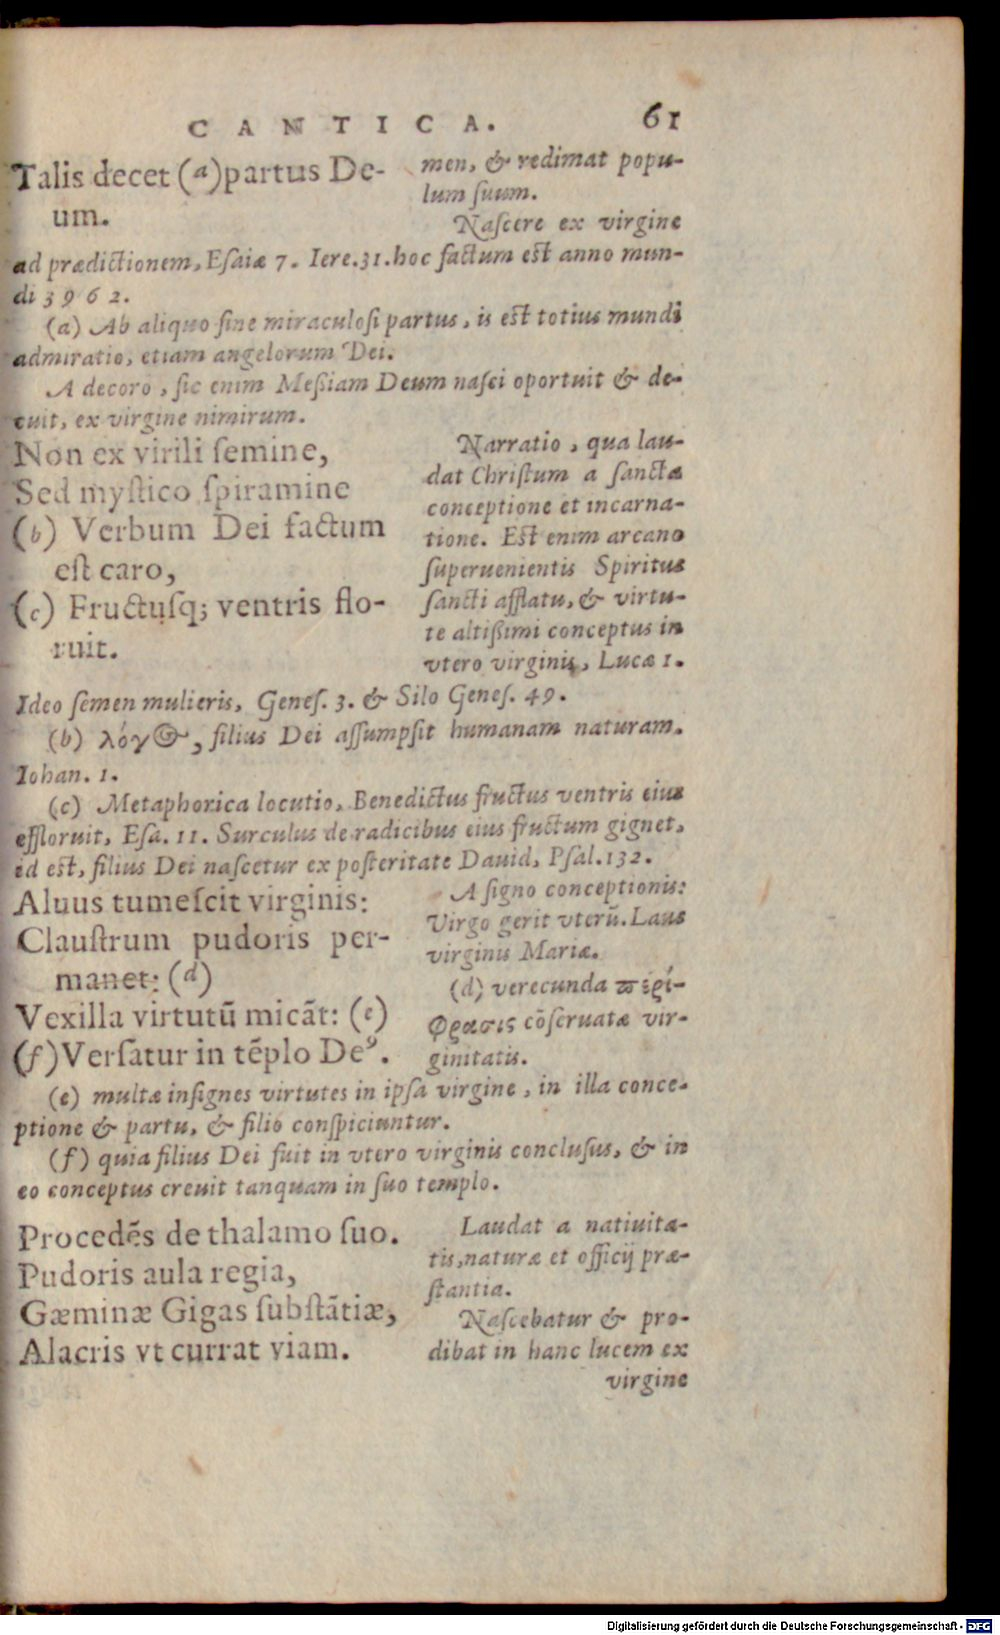 CANTICA. 61
Talis decet (a) partus De-
um.
men, & redimat popu-
lum ſuum.
Naſcere ex virgine
ad prædictionem, Eſaiæ 7. Iere.31. hoc factum eſt anno mun-
di 3962.
(a) Ab aliquo fine miraculoſi partus, is eſt totius mundi
admiratio, etiam angelorum Dei.
A decoro, ſic enim Meßiam Deum naſci oportuit & de-
cuit, ex virgine nimirum.
Non ex virili ſemine,
Sed myſtico ſpiramine
(b) Verbum Dei factum
eſt caro,
(c) Fructuſq; ventris flo-
ruit.
Narratio, qua lau-
dat Chriſtum a ſancta
conceptione et incarna-
tione. Eſt enim arcano
ſuperuenientis Spiritus
ſancti afflatu, & virtu-
te altißimi conceptus in
vtero virginis, Lucæ 1.
Ideo ſemen mulieris, Geneſ. 3. & Silo Geneſ. 49.
(b) λόγος, filius Dei aſſumpſit humanam naturam.
Iohan. 1.
(c) Metaphorica locutio, Benedictus fructus ventris eius
effloruit, Eſa. 11. Surculus de radicibus eius fructum gignet,
id eſt, filius Dei naſcetur ex poſteritate Dauid, Pſal.132.
Aluus tumeſcit virginis:
Clauſtrum pudoris per-
manet: (d)
Vexilla virtutũ micãt: (e)
(f) Verſatur in tẽplo Deꝰ.
A ſigno conceptionis:
Virgo gerit vterũ. Laus
virginis Mariæ.
(d) verecunda ϖερί-
φρασις cõſeruatæ vir-
ginitatis.
(e) multæ inſignes virtutes in ipſa virgine, in illa conce-
ptione & partu, & filio conſpiciuntur.
(f) quia filius Dei fuit in vtero virginis concluſus, & in
eo conceptus creuit tanquam in ſuo templo.
Procedẽs de thalamo ſuo.
Pudoris aula regia,
Gæminæ Gigas ſubſtãtiæ,
Alacris vt currat viam.
Laudat a natiuita-
tis, naturæ et officij præ-
ſtantia.
Naſcebatur & pro-
dibat in hanc lucem ex
virgine
Digitalisierung gefördert durch die Deutsche Forschungsgemeinschaft - DFG